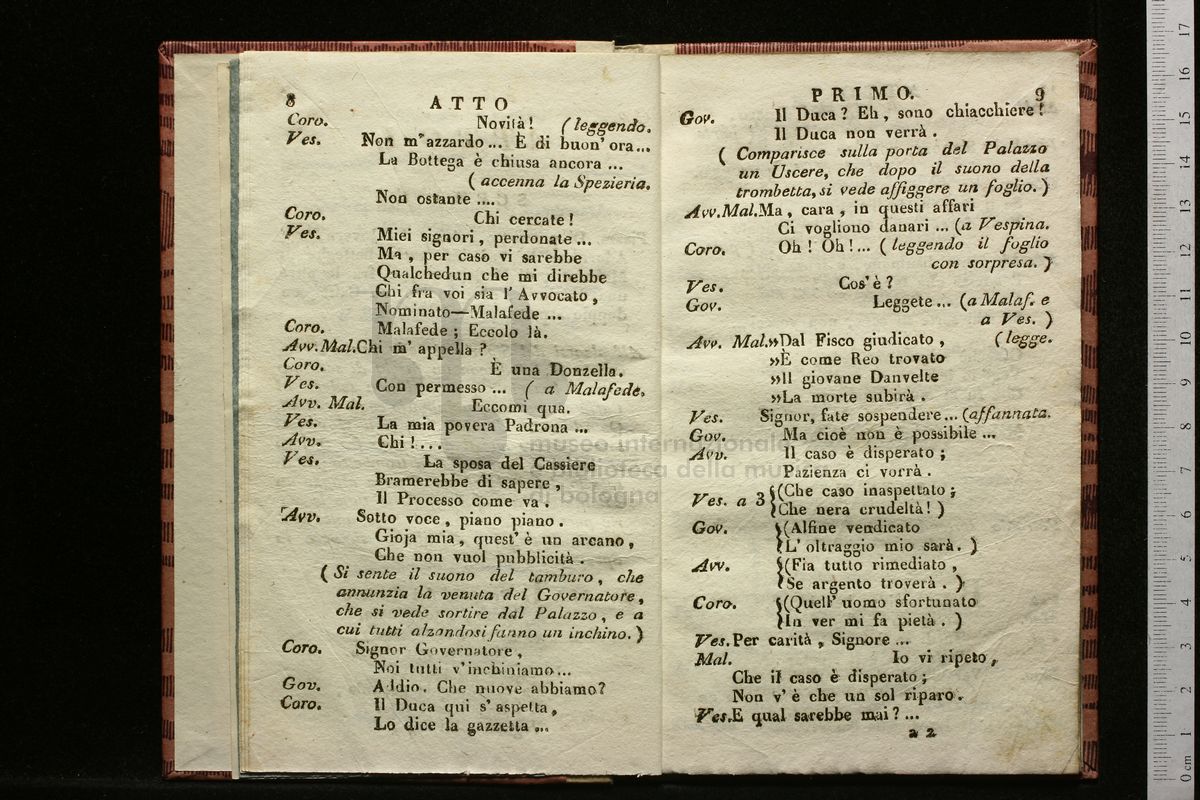 8 ATTO
Coro. Novità! (leggendo.
Ves. Non m'azzardo... È di buon' ora...
La Bottega è chiusa ancora ...
(accenna la Spezieria.
Non ostante ....
Coro. Chi cercate!
Ves. Miei signori, perdonate ...
Ma, per caso vi sarebbe
Qualchedun che mi direbbe
Chi fra voi sia l'Avvocato,
Nominato—Malafede ...
Coro. Malafede; Eccolo là.
Avv. Mal. Chi m'appella?
Coro. È una Donzella.
Ves. Con permesso ... (a Malafede.
Avv. Mal. Eccomi qua.
Ves. La mia povera Padrona ...
Avv. Chi!...
Ves. La sposa del Cassiere
Bramerebbe di sapere,
Il Processo come va.
Avv. Sotto voce, piano piano.
Gioja mia, quest' è un arcano,
Che non vuol pubblicità.
(Si sente il suono del tamburo, che
annunzia la venuta del Governatore,
che si vede sortire dal Palazzo, e a
cui tutti alzandosi fanno un inchino.)
Coro. Signor Governatore,
Noi tutti v'inchiniamo...
Gov. Addio. Che nuove abbiamo?
Coro. Il Duca qui s' aspetta,
Lo dice la gazzetta ...
PRIMO. 9
Gov. Il Duca? Eh, sono chiacchiere!
Il Duca non verrà.
(Comparisce sulla porta del Palazzo
un Uscere, che dopo il suono della
trombetta, si vede affiggere un foglio.)
Avv. Mal. Ma, cara, in questi affari
Ci vogliono danari ... (a Vespina.
Coro. Oh! Oh!... (leggendo il foglio
con sorpresa.)
Ves. Cos' è?
Gov. Leggete... (a Malaf. e
a Ves.)
Avv. Mal. »Dal Fisco giudicato, (legge.
»E come Reo trovato
»Il giovane Danvelte
»La morte subirà.
Ves. Signor, fate sospendere... (affannata.
Gov. Ma cioè non è possibile ...
Avv. Il caso è disperato;
Pazienza ci vorrà.
Ves. a 3 {(Che caso inaspettato;
{Che nera crudeltà!)
Gov. {(Alfine vendicato
{L' oltraggio mio sarà.)
Avv. {(Fia tutto rimediato,
{Se argento troverà.)
Coro. {(Quell' uomo sfortunato
{In ver mi fa pietà.)
Ves. Per carità, Signore ...
Mal. Io vi ripeto,
Che il caso è disperato;
Non v' è che un sol riparo.
Ves. E qual sarebbe mai? ...
a 2
museo internazionale
biblioteca della musica
di bologna
0 cm 1 2 3 4 5 6 7 8 9 10 11 12 13 14 15 16 17